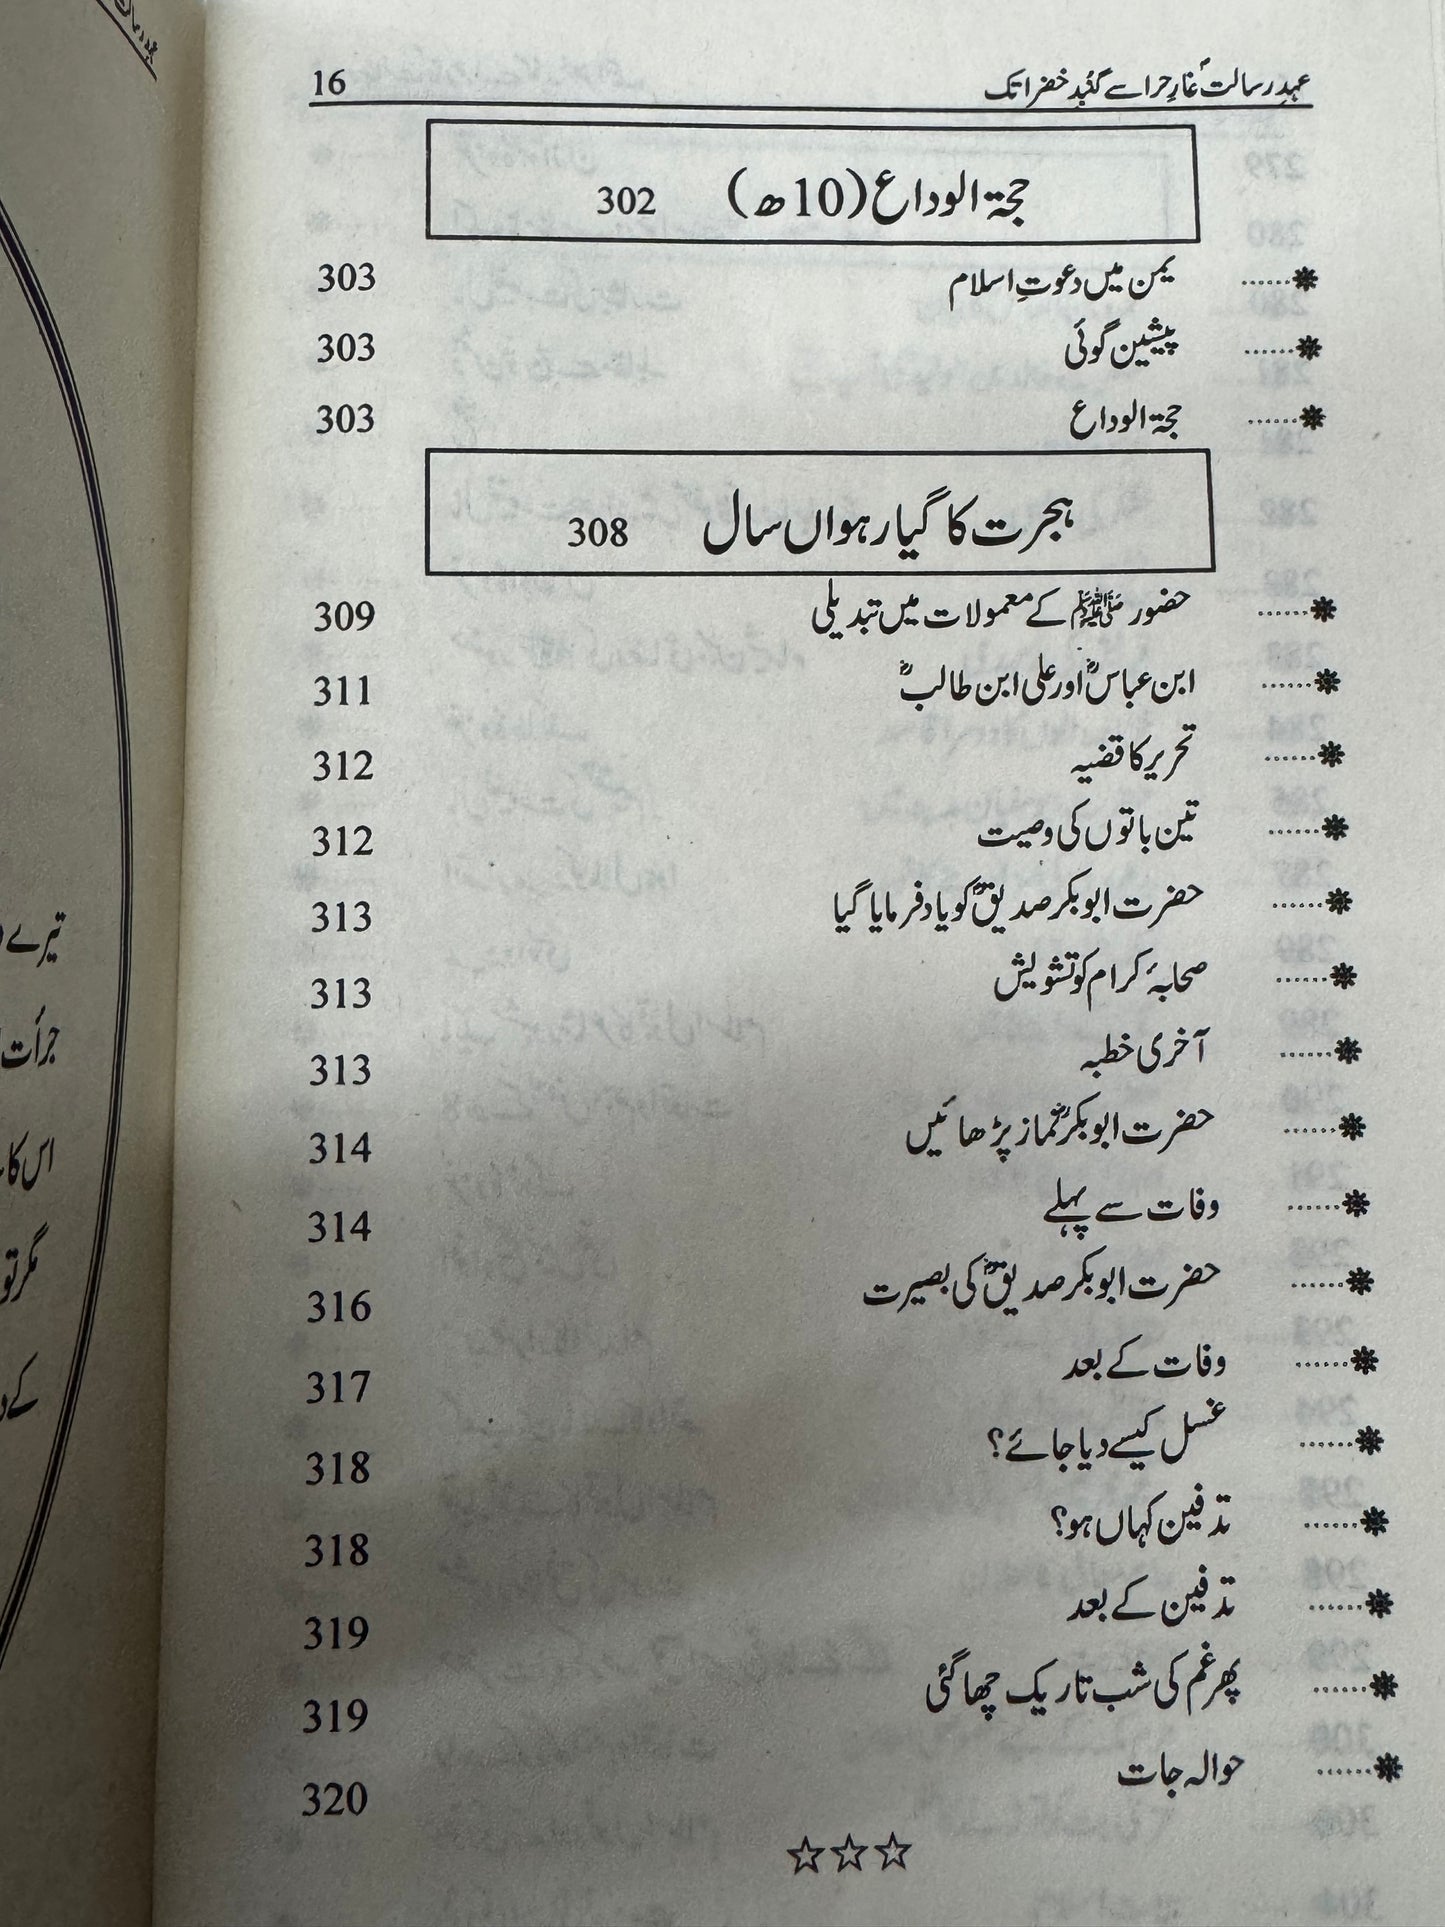 عہدِ رسالتؐ غارِ حرا سے گنبدِ خضرا تک 16
حجۃ الوداع (10ھ) 302
یمن میں دعوتِ اسلام 303
پیشین گوئی 303
حجۃ الوداع 303
ہجرت کا گیارہواں سال 308
حضور ﷺ کے معمولات میں تبدیلی 309
ابن عباسؓ اور علی ابن طالبؓ 311
تحریر کا قضیہ 312
تین باتوں کی وصیت 312
حضرت ابوبکر صدیقؓ کو یاد فرمایا گیا 313
صحابۂ کرام کو تشویش 313
آخری خطبہ 313
حضرت ابوبکرؓ نماز پڑھائیں 314
وفات سے پہلے 314
حضرت ابوبکر صدیقؓ کی بصیرت 316
وفات کے بعد 317
غسل کیسے دیا جائے؟ 318
تدفین کہاں ہو؟ 318
تدفین کے بعد 319
پھر غم کی شب تاریک چھا گئی 319
حوالہ جات 320
☆☆☆
تیرے
جرأت
اس کا
مگر تو
کے